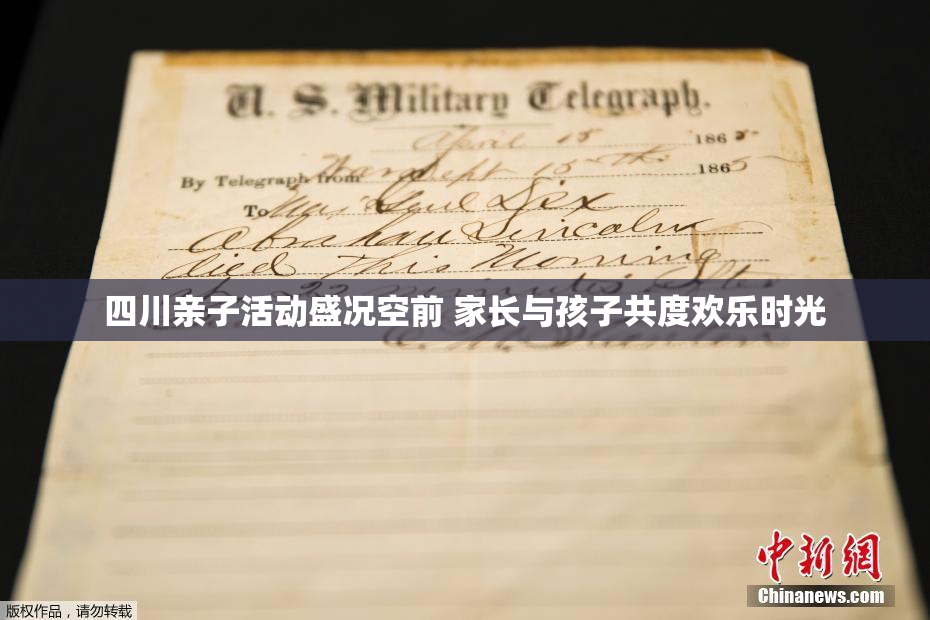 U. S. Military Telegraph.
April 15 1865
By Telegraph from War Dept 15th 1865
To Maj Genl Dix
Abraham Lincoln
died This Morning
at 22 minutes after
四川亲子活动盛况空前 家长与孩子共度欢乐时光
Stanton
中新網
Chinanews.com
版权作品，请勿转载